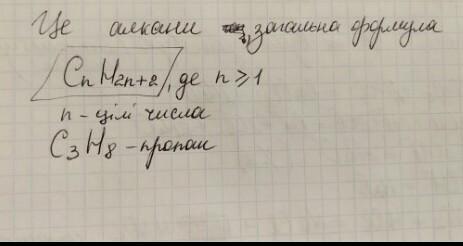 Це алкани, загальна формула
CnH2n+2, де n ≥ 1
n - цілі числа
C3H8 - пропан